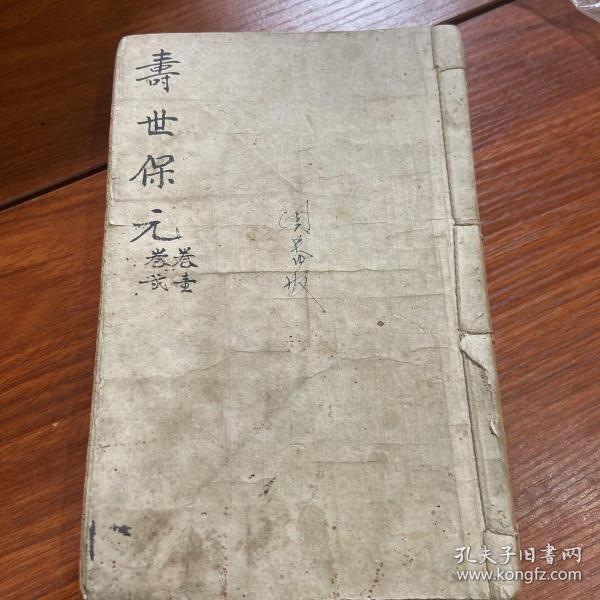 壽世保元
卷壹
卷弍
孔夫子旧书网
www.kongfz.com